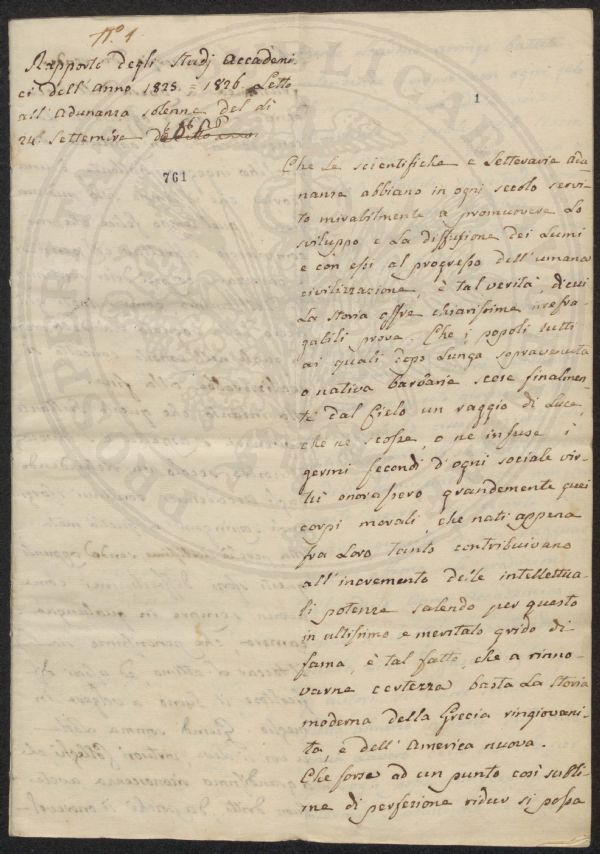 N.° 1
Rapporto degli studj accademi
ci dell'anno 1825 = 1826. Letto
all'adunanza solenne del dì
24. Settembre
761
1
Che le scientifiche e letterarie adu
nanze abbiano in ogni secolo servi
to mirabilmente a promuovere lo
sviluppo e la diffusione dei lumi
e con essi al progresso dell'umana
civilizzazione, è tal verità, di cui
la storia offre chiarissime irrefra
gabili prove. Che i popoli tutti
ai quali dopo lunga sopravvenuta
o nativa barbarie scese finalmen
te dal Cielo un raggio di luce,
che ne scosse, o ne infuse i
germi fecondi d'ogni sociale vir
tù onorassero grandemente quei
corpi morali, che nati appena
fra loro tanto contribuivano
all'incremento delle intellettua
li potenze salendo per questo
in altissimo e meritato grido di
fama, è tal fatto, che a rinno
varne certezza basta la storia
moderna della Grecia ringiovani
ta, e dell'America nuova.
Che forse ad un punto così subli
me di perfezione ridur si possa